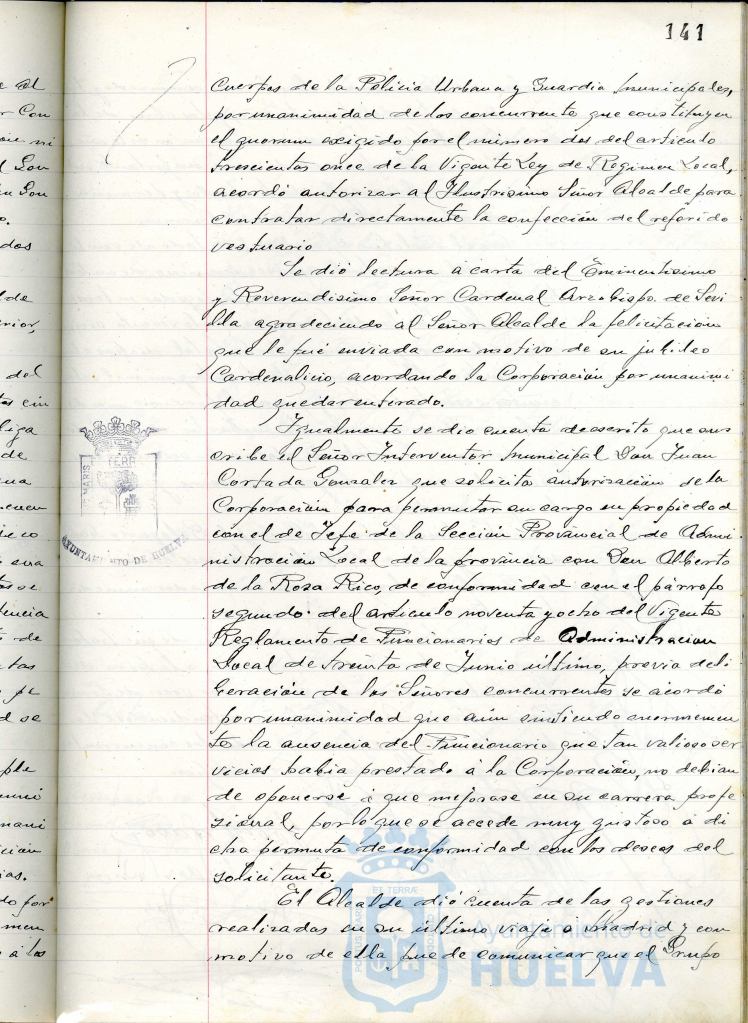 141
cuerpos de la Policia Urbana y Guardia municipales,
por unanimidad de los concurrente que constituyen
el quorum exigido por el número dos del articulo
trescientos once de la Vigente Ley de Regimen Local,
acordó autorizar al Ilustrisimo Señor Alcalde para
contratar directamente la confección del referido
vestuario
Se dió lectura á carta del Eminentisimo
y Reverendisimo Señor Cardenal Arzobispo de Sevi
lla agradeciendo al Señor Alcalde la felicitacion
que le fué enviada con motivo de su jubileo
Cardenalicio, acordando la Corporación por unanimi
dad quedar enterado.
Igualmente se dio cuenta de escrito que sus
cribe el Señor Interventor municipal Don Juan
Cortada Gonzalez que solicita autorización de la
Corporación para permutar su cargo en propiedad
con el de Jefe de la Sección Provincial de Admi-
nistración Local de la provincia con Don Alberto
de la Rosa Rico, de conformidad con el párrafo
segundo del articulo noventa y ocho del Vigente
Reglamento de Funcionarios de Administracion
Local de treinta de Junio último, previa deli
beración de los Señores concurrentes se acordó
por unanimidad que aún sintiendo enormemen
te la ausencia del Funcionario que tan valioso ser
vicios habia prestado á la Corporación, no debian
de oponerse á que mejorase en su carrera profe
sional, por lo que se accede muy gustoso á di
cha permuta de conformidad con los deseos del
solicitante.
El Alcalde dió cuenta de las gestiones
realizadas en su último viaje a Madrid y con
motivo de ella puede comunicar que el Grupo
AYUNTAMIENTO DE HUELVA
Ayuntamiento de
HUELVA